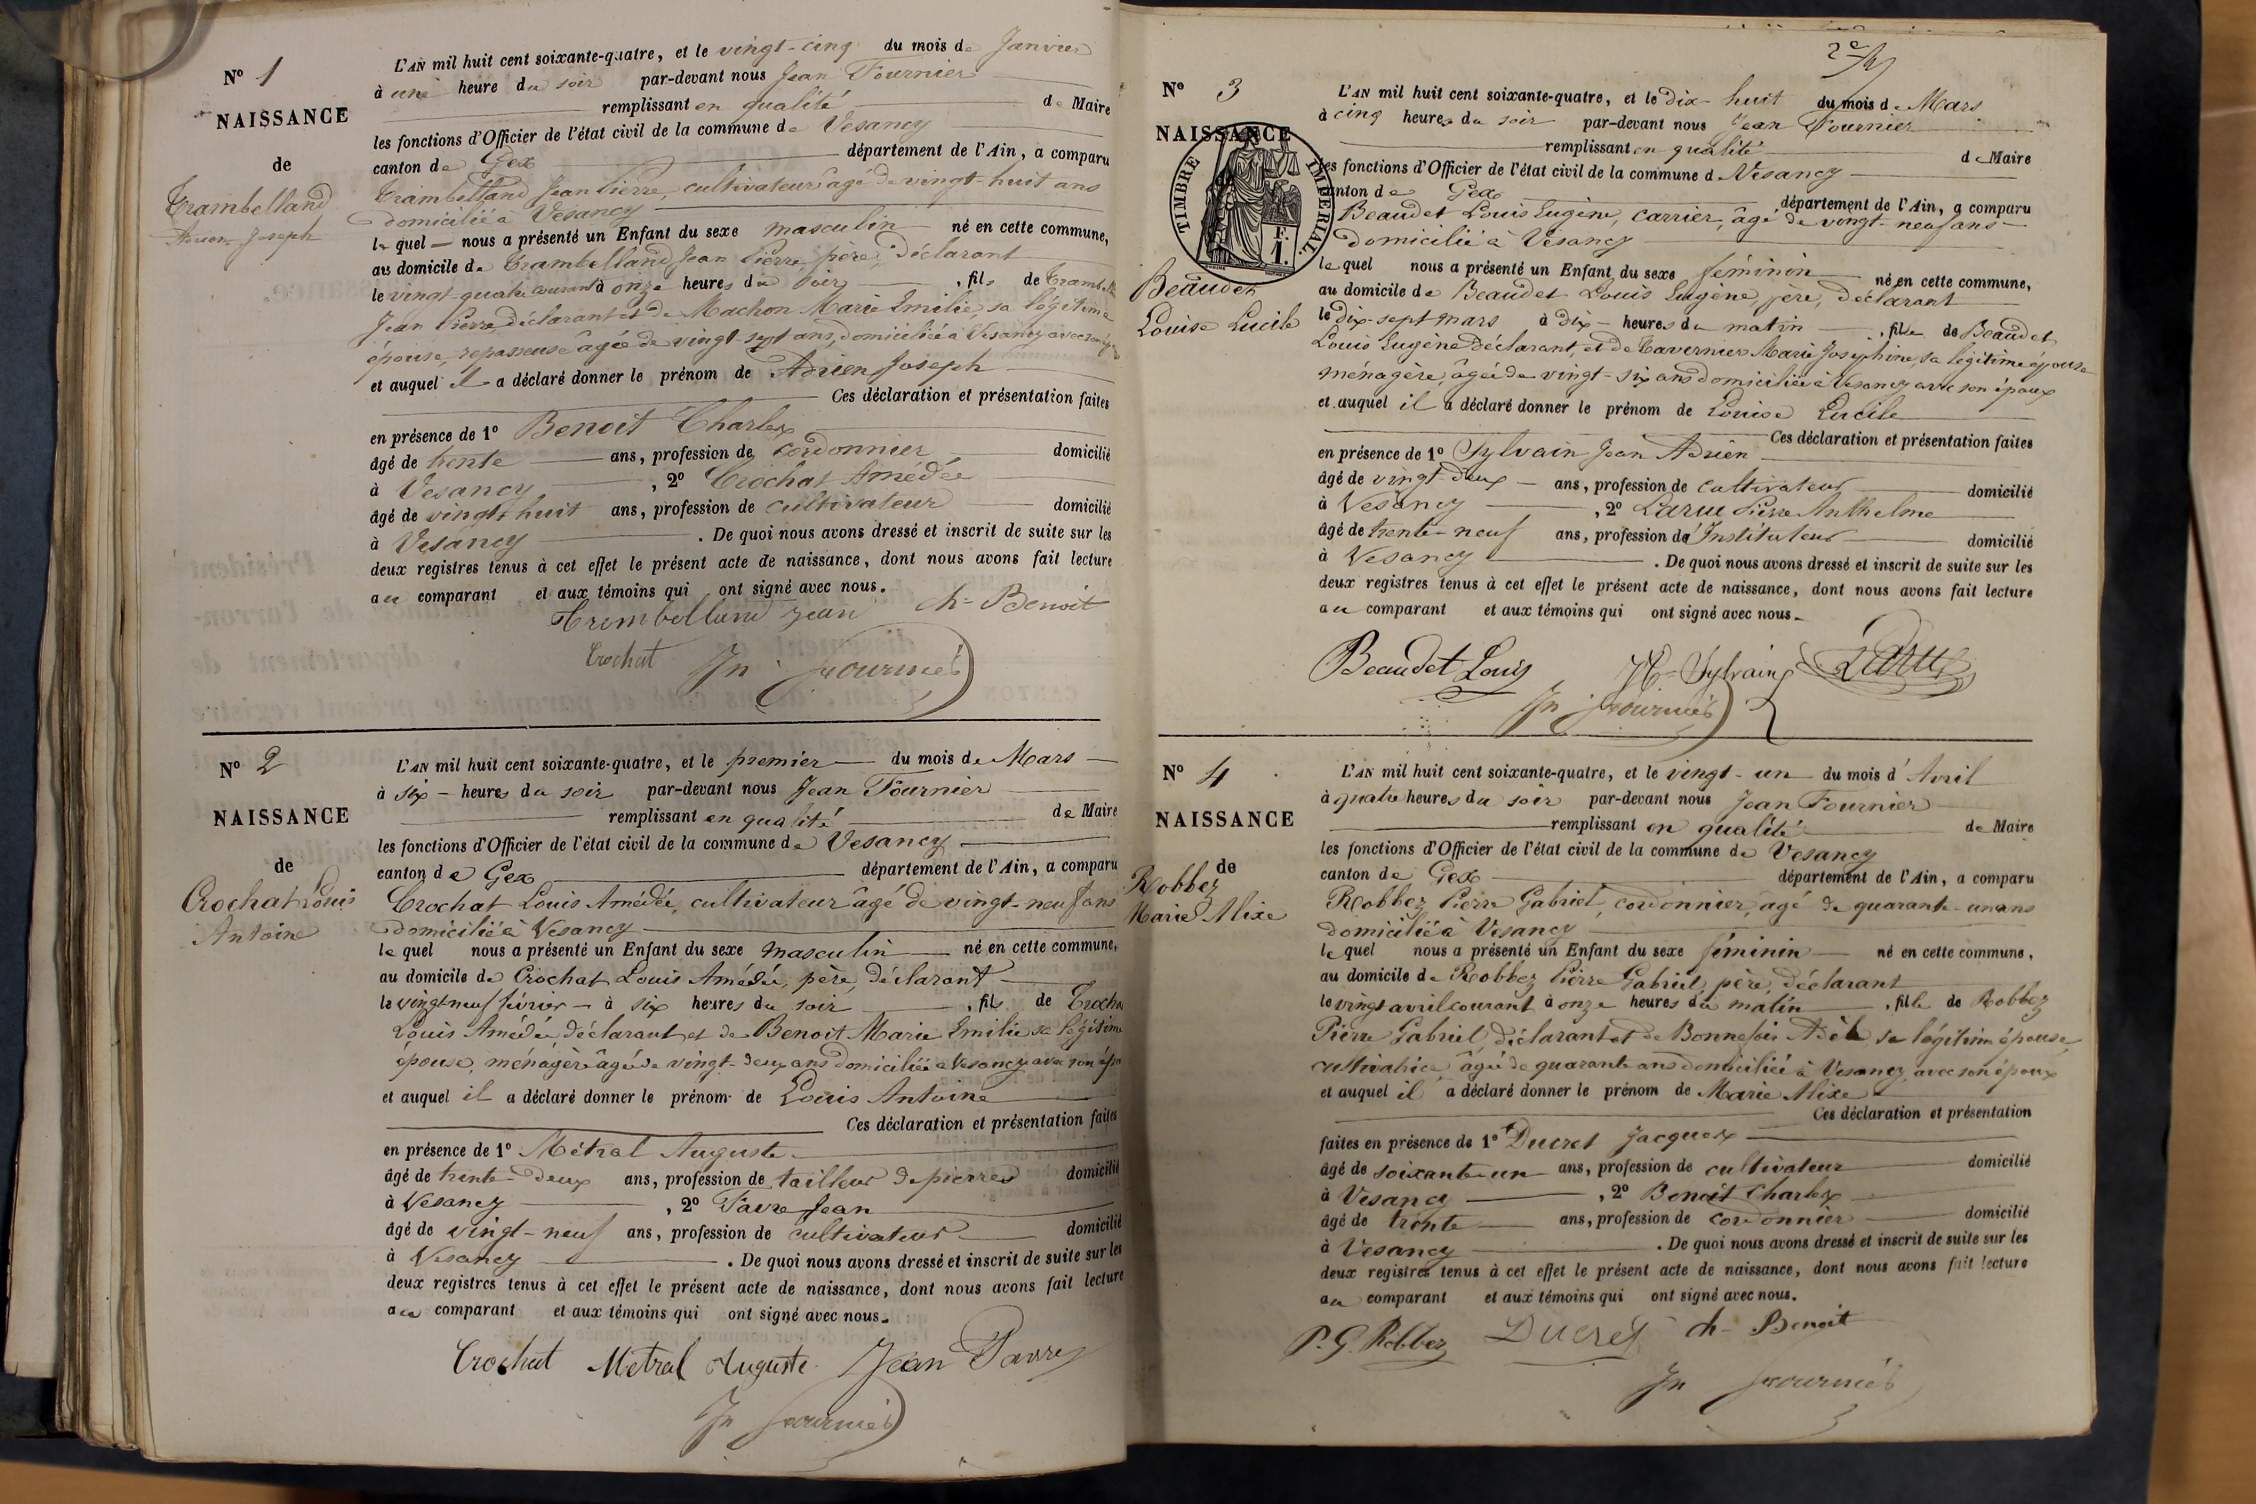 N° 1
NAISSANCE
de
Trambelland
Adrien Joseph
L'AN mil huit cent soixante-quatre, et le vingt-cinq du mois de Janvier
à une heure du soir par-devant nous Jean Fournier
remplissant en qualité de Maire
les fonctions d'Officier de l'état civil de la commune de Vesancy
canton de Gex département de l'Ain, a comparu
Trambelland Jean Pierre, cultivateur âgé de vingt-huit ans
domicilié à Vesancy
le quel nous a présenté un Enfant du sexe masculin né en cette commune,
au domicile de Trambelland Jean Pierre, père, déclarant
le vingt-quatre courant à onze heures du soir, fils de Trambelland
Jean Pierre déclarant et de Machon Marie Emilie, sa légitime
épouse, repasseuse âgée de vingt-sept ans, domiciliée à Vesancy avec son
et auquel il a déclaré donner le prénom de Adrien Joseph
Ces déclaration et présentation faites
en présence de 1° Benoit Charles
âgé de trente ans, profession de cordonnier domicilié
à Vesancy, 2° Crochat Amédée
âgé de vingt-huit ans, profession de cultivateur domicilié
à Vesancy. De quoi nous avons dressé et inscrit de suite sur les
deux registres tenus à cet effet le présent acte de naissance, dont nous avons fait lecture
au comparant et aux témoins qui ont signé avec nous.
Trembelland jean ch- Benoit
Crochat Jn fournier
N° 2
NAISSANCE
de
Crochat Louis
Antoine
L'AN mil huit cent soixante-quatre, et le premier du mois de Mars
à six heures du soir par-devant nous Jean Fournier
remplissant en qualité de Maire
les fonctions d'Officier de l'état civil de la commune de Vesancy
canton de Gex département de l'Ain, a comparu
Crochat Louis Amédée, cultivateur âgé de vingt-neuf ans
domicilié à Vesancy
le quel nous a présenté un Enfant du sexe masculin né en cette commune,
au domicile de Crochat Louis Amédée, père, déclarant
le vingt neuf février à six heures du soir, fils de Crochat
Louis Amédée déclarant et de Benoit Marie Emilie sa légitime
épouse, ménagère âgée de vingt-deux ans domiciliée à Vesancy avec son
et auquel il a déclaré donner le prénom de Louis Antoine
Ces déclaration et présentation faites
en présence de 1° Métral Auguste
âgé de trente-deux ans, profession de tailleur de pierres domicilié
à Vesancy, 2° Favre Jean
âgé de vingt-neuf ans, profession de cultivateur domicilié
à Vesancy. De quoi nous avons dressé et inscrit de suite sur les
deux registres tenus à cet effet le présent acte de naissance, dont nous avons fait lecture
au comparant et aux témoins qui ont signé avec nous.
Crochat Métral Auguste Jean Favre
Jn fournier
N° 3
NAISSANCE
TIMBRE IMPERIAL
F.
1.
Beaudet
Louise Lucile
L'AN mil huit cent soixante-quatre, et le dix-huit du mois de Mars
à cinq heures du soir par-devant nous Jean Fournier
remplissant en qualité de Maire
les fonctions d'Officier de l'état civil de la commune d Vesancy
canton de Gex département de l'Ain, a comparu
Beaudet Louis Eugène, carrier, âgé de vingt-neuf ans
domicilié à Vesancy
le quel nous a présenté un Enfant du sexe féminin né en cette commune,
au domicile de Beaudet Louis Eugène, père, déclarant
le dix-sept mars à dix heures du matin, fille de Beaudet
Louis Eugène déclarant, et de Tavernier Marie Joséphine, sa légitime épouse
ménagère, âgée de vingt-six ans domiciliée à Vesancy avec son époux
et auquel il a déclaré donner le prénom de Louise Lucile
Ces déclaration et présentation faites
en présence de 1° Sylvain Jean Adrien
âgé de vingt-deux ans, profession de cultivateur domicilié
à Vesancy, 2° Larue Pierre Anthelme
âgé de trente-neuf ans, profession d'Instituteur domicilié
à Vesancy. De quoi nous avons dressé et inscrit de suite sur les
deux registres tenus à cet effet le présent acte de naissance, dont nous avons fait lecture
au comparant et aux témoins qui ont signé avec nous.
Beaudet Louis Sylvain Larue
Jn fournier
N° 4
NAISSANCE
de
Robbez
Marie Alixe
L'AN mil huit cent soixante-quatre, et le vingt-un du mois d'Avril
à quatre heures du soir par-devant nous Jean Fournier
remplissant en qualité de Maire
les fonctions d'Officier de l'état civil de la commune de Vesancy
canton de Gex département de l'Ain, a comparu
Robbez Pierre Gabriel, cordonnier, âgé de quarante-un ans
domicilié à Vesancy
le quel nous a présenté un Enfant du sexe féminin né en cette commune,
au domicile de Robbez Pierre Gabriel, père, déclarant
le vingt avril courant à onze heures du matin, fille de Robbez
Pierre Gabriel, déclarant et de Bonnefois Adèle sa légitime épouse,
cultivatrice, âgée de quarante ans domiciliée à Vesancy, avec son époux
et auquel il a déclaré donner le prénom de Marie Alixe
Ces déclaration et présentation
faites en présence de 1° Ducret Jacques
âgé de soixante-un ans, profession de cultivateur domicilié
à Vesancy, 2° Benoit Charles
âgé de trente ans, profession de cordonnier domicilié
à Vesancy. De quoi nous avons dressé et inscrit de suite sur les
deux registres tenus à cet effet le présent acte de naissance, dont nous avons fait lecture
au comparant et aux témoins qui ont signé avec nous.
P. G. Robbez Ducret ch- Benoit
Jn fournier